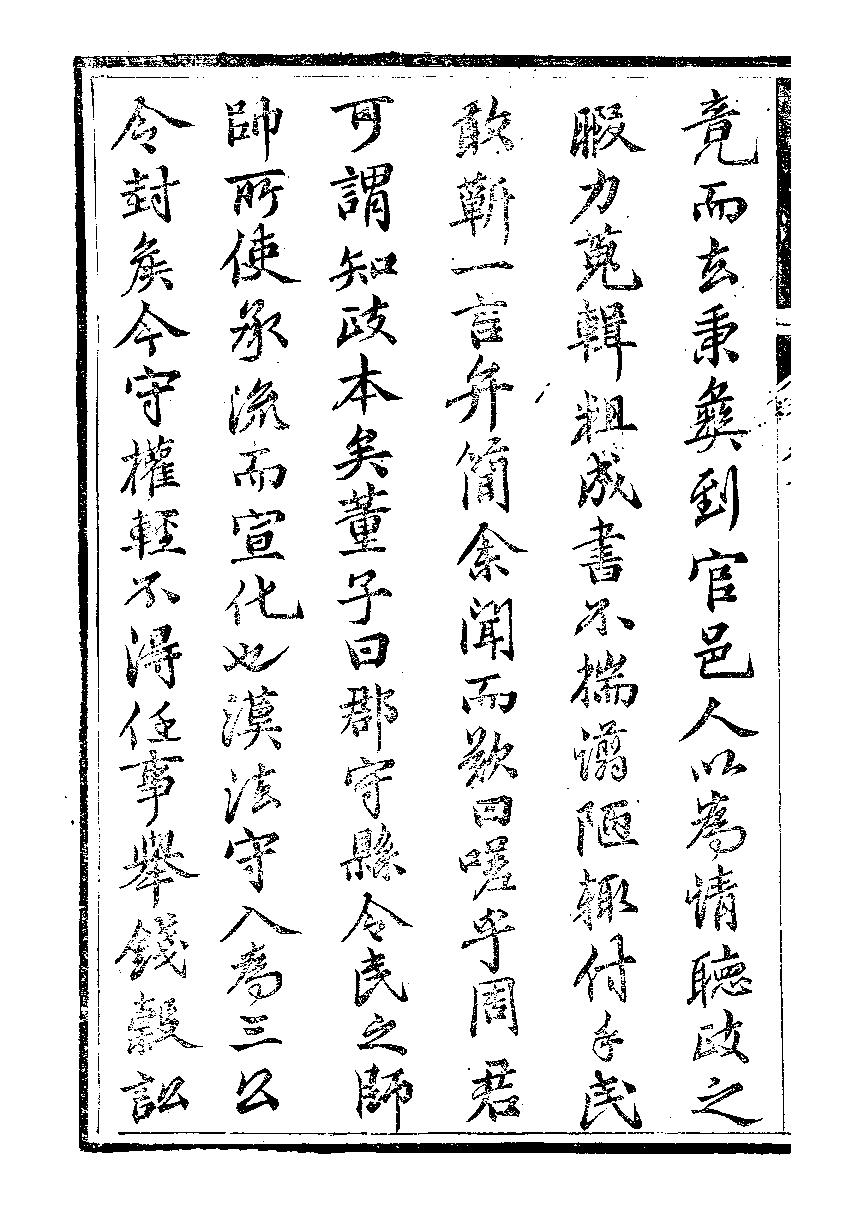 竟而去秉彝到官邑人以為情聽政之
暇力蒐輯粗成書不揣譾陋輙付手民
敢蘄一言弁簡余聞而歎曰嗟乎周君
可謂知政本矣董子曰郡守縣令民之師
帥所使承流而宣化也漢法守入為三公
令封矦今守權輕不得任事舉錢穀訟